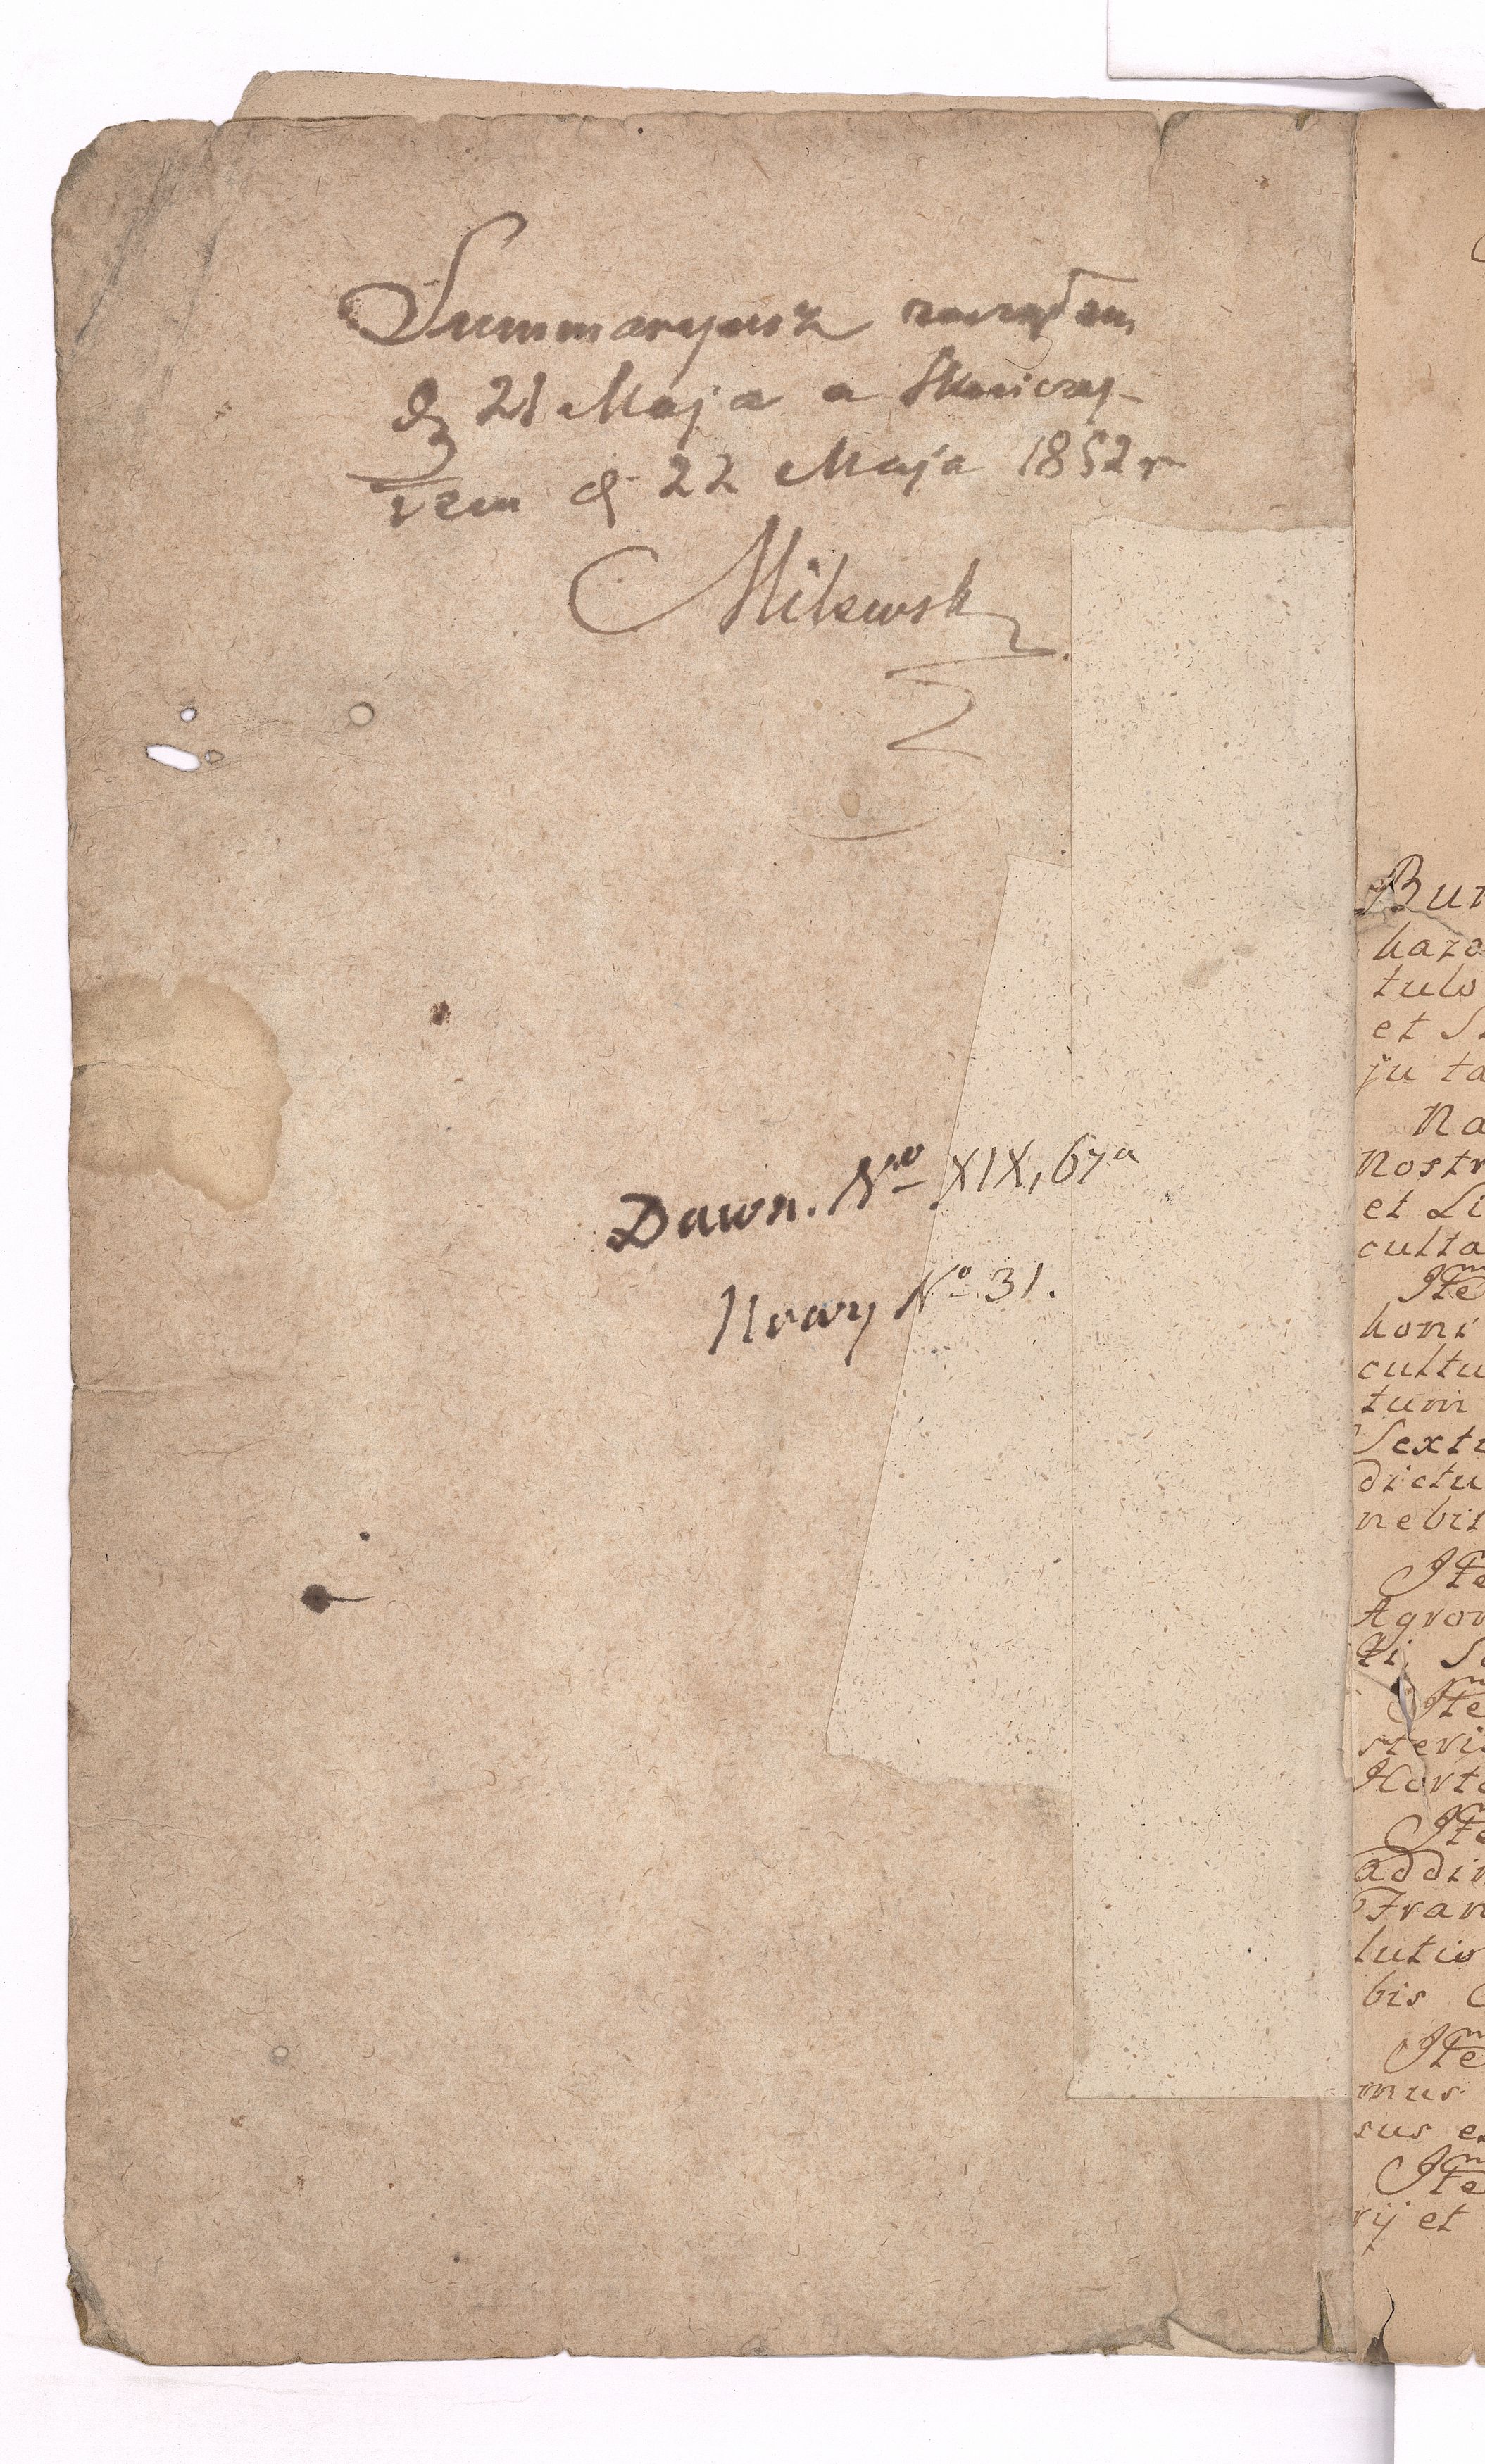 Summaryusz zacząłem
d 21 Maja a Skończy-
łem d. 22 Maja 1852 r
Milewski
Dawn. Nro XIX, 67a
Nowy No 31.
Bur
haro
tulo
et S
ju ta
Na
Nostr
et Li
culta
Item
honi
cultu
tum
Sexti
dictu
nebit
Item
Agror
ti, S
Item
steri
Horto
Item
addin
Fran
lutio
bis
Item
mus
sus e
Item
rij et